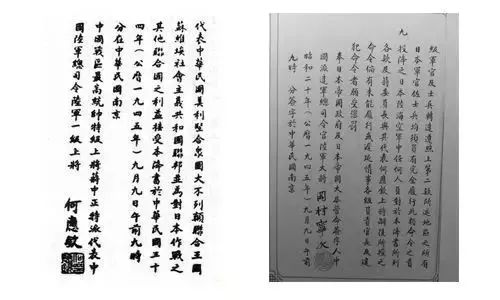 級軍官及士兵轉達遵照上第二款所述地區之所有
日本軍官佐士兵均須負有完全履行此類命令之責
九 投降之日本陸海空軍中任何人員對於本降書所列
各款及蔣委員長與其代表何應欽上將嗣後所授之
命令倘有未能履行或遲延情事各級負責官長及違
犯命令者願受懲罰
奉日本帝國政府及日本帝國大本營命簽字人中
國派遣軍總司令官陸軍大將 岡村寧次
昭和二十年(公曆一九四五年)九月九日午前
九時 分簽字於中華民國南京
代表中華民國美利堅合衆國大不列顛聯合王國
蘇維埃社會主義共和國聯邦並為對日本作戰之
其他聯合國之利益接受本降書於中華民國三十
四年(公曆一九四五年)九月九日午前九時
分在中華民國南京
中國戰區最高統帥特級上將蔣中正特派代表中
國陸軍總司令陸軍一級上將
何應欽